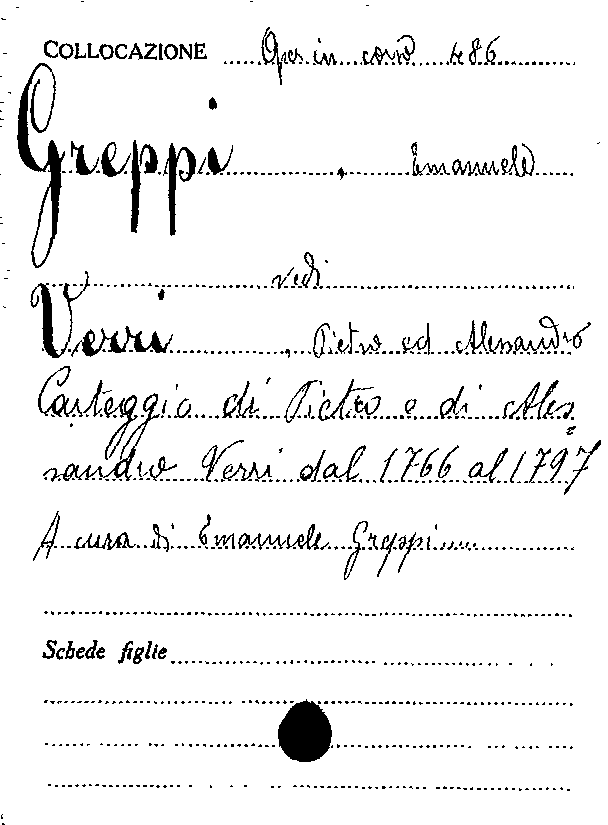 COLLOCAZIONE Oper in corso 486
Greppi, Emanuele
vedi
Verri, Pietro ed Alessandro
Carteggio di Pietro e di Ales=
sandro Verri dal 1766 al 1797
A cura di Emanuele Greppi.....
Schede figlie